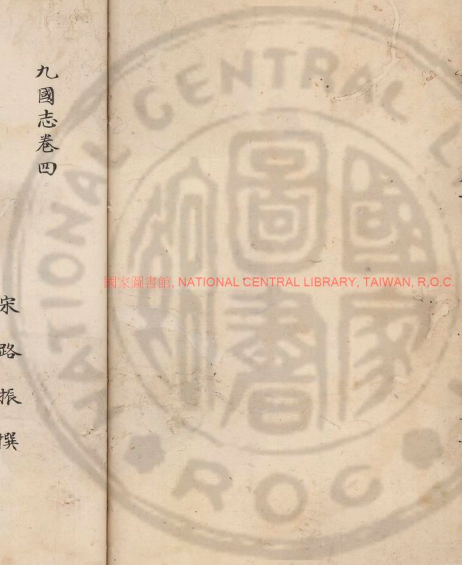 九國志卷四
宋路振撰
國家圖書館, NATIONAL CENTRAL LIBRARY, TAIWAN, R.O.C.
NATIONAL CENTRAL L
國家圖書
ROC